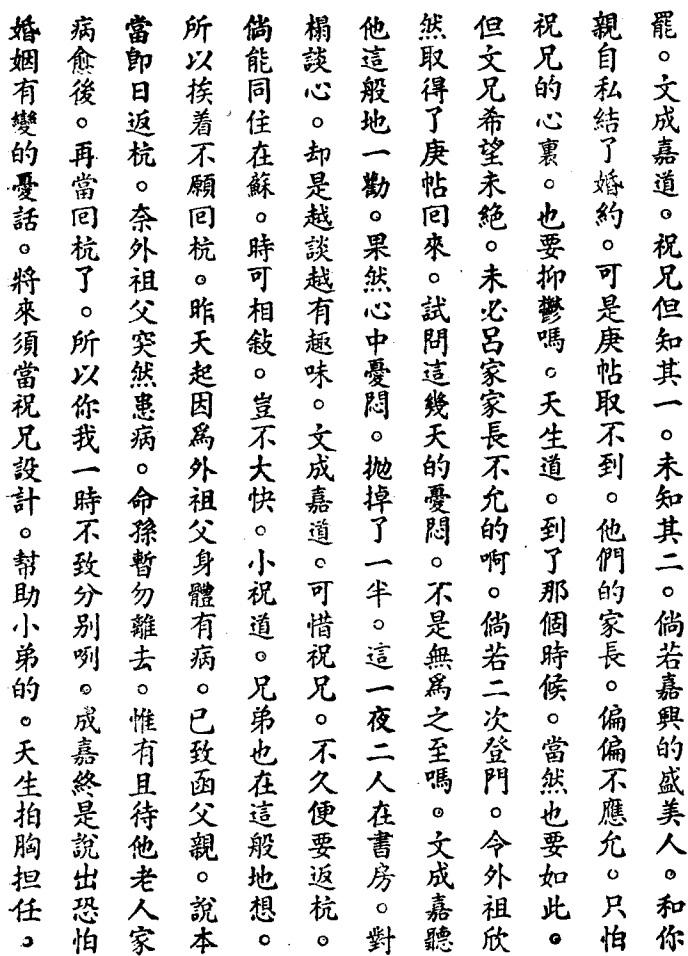 罷。文成嘉道。祝兄但知其一。未知其二。倘若嘉興的盛美人。和你
親自私結了婚約。可是庚帖取不到。他們的家長。偏偏不應允。只怕
祝兄的心裏。也要抑鬱嗎。天生道。到了那個時候。當然也要如此。
但文兄希望未絕。未必呂家家長不允的啊。倘若二次登門。令外祖欣
然取得了庚帖囘來。試問這幾天的憂悶。不是無爲之至嗎。文成嘉聽
他這般地一勸。果然心中憂悶。拋掉了一半。這一夜二人在書房。對
榻談心。却是越談越有趣味。文成嘉道。可惜祝兄。不久便要返杭。
倘能同住在蘇。時可相敍。豈不大快。小祝道。兄弟也在這般地想。
所以挨着不願囘杭。昨天起因爲外祖父身體有病。已致函父親。說本
當卽日返杭。奈外祖父突然患病。命孫暫勿離去。惟有且待他老人家
病愈後。再當囘杭了。所以你我一時不致分別咧。成嘉終是說出恐怕
婚姻有變的憂話。將來須當祝兄設計。幫助小弟的。天生拍胸担任。